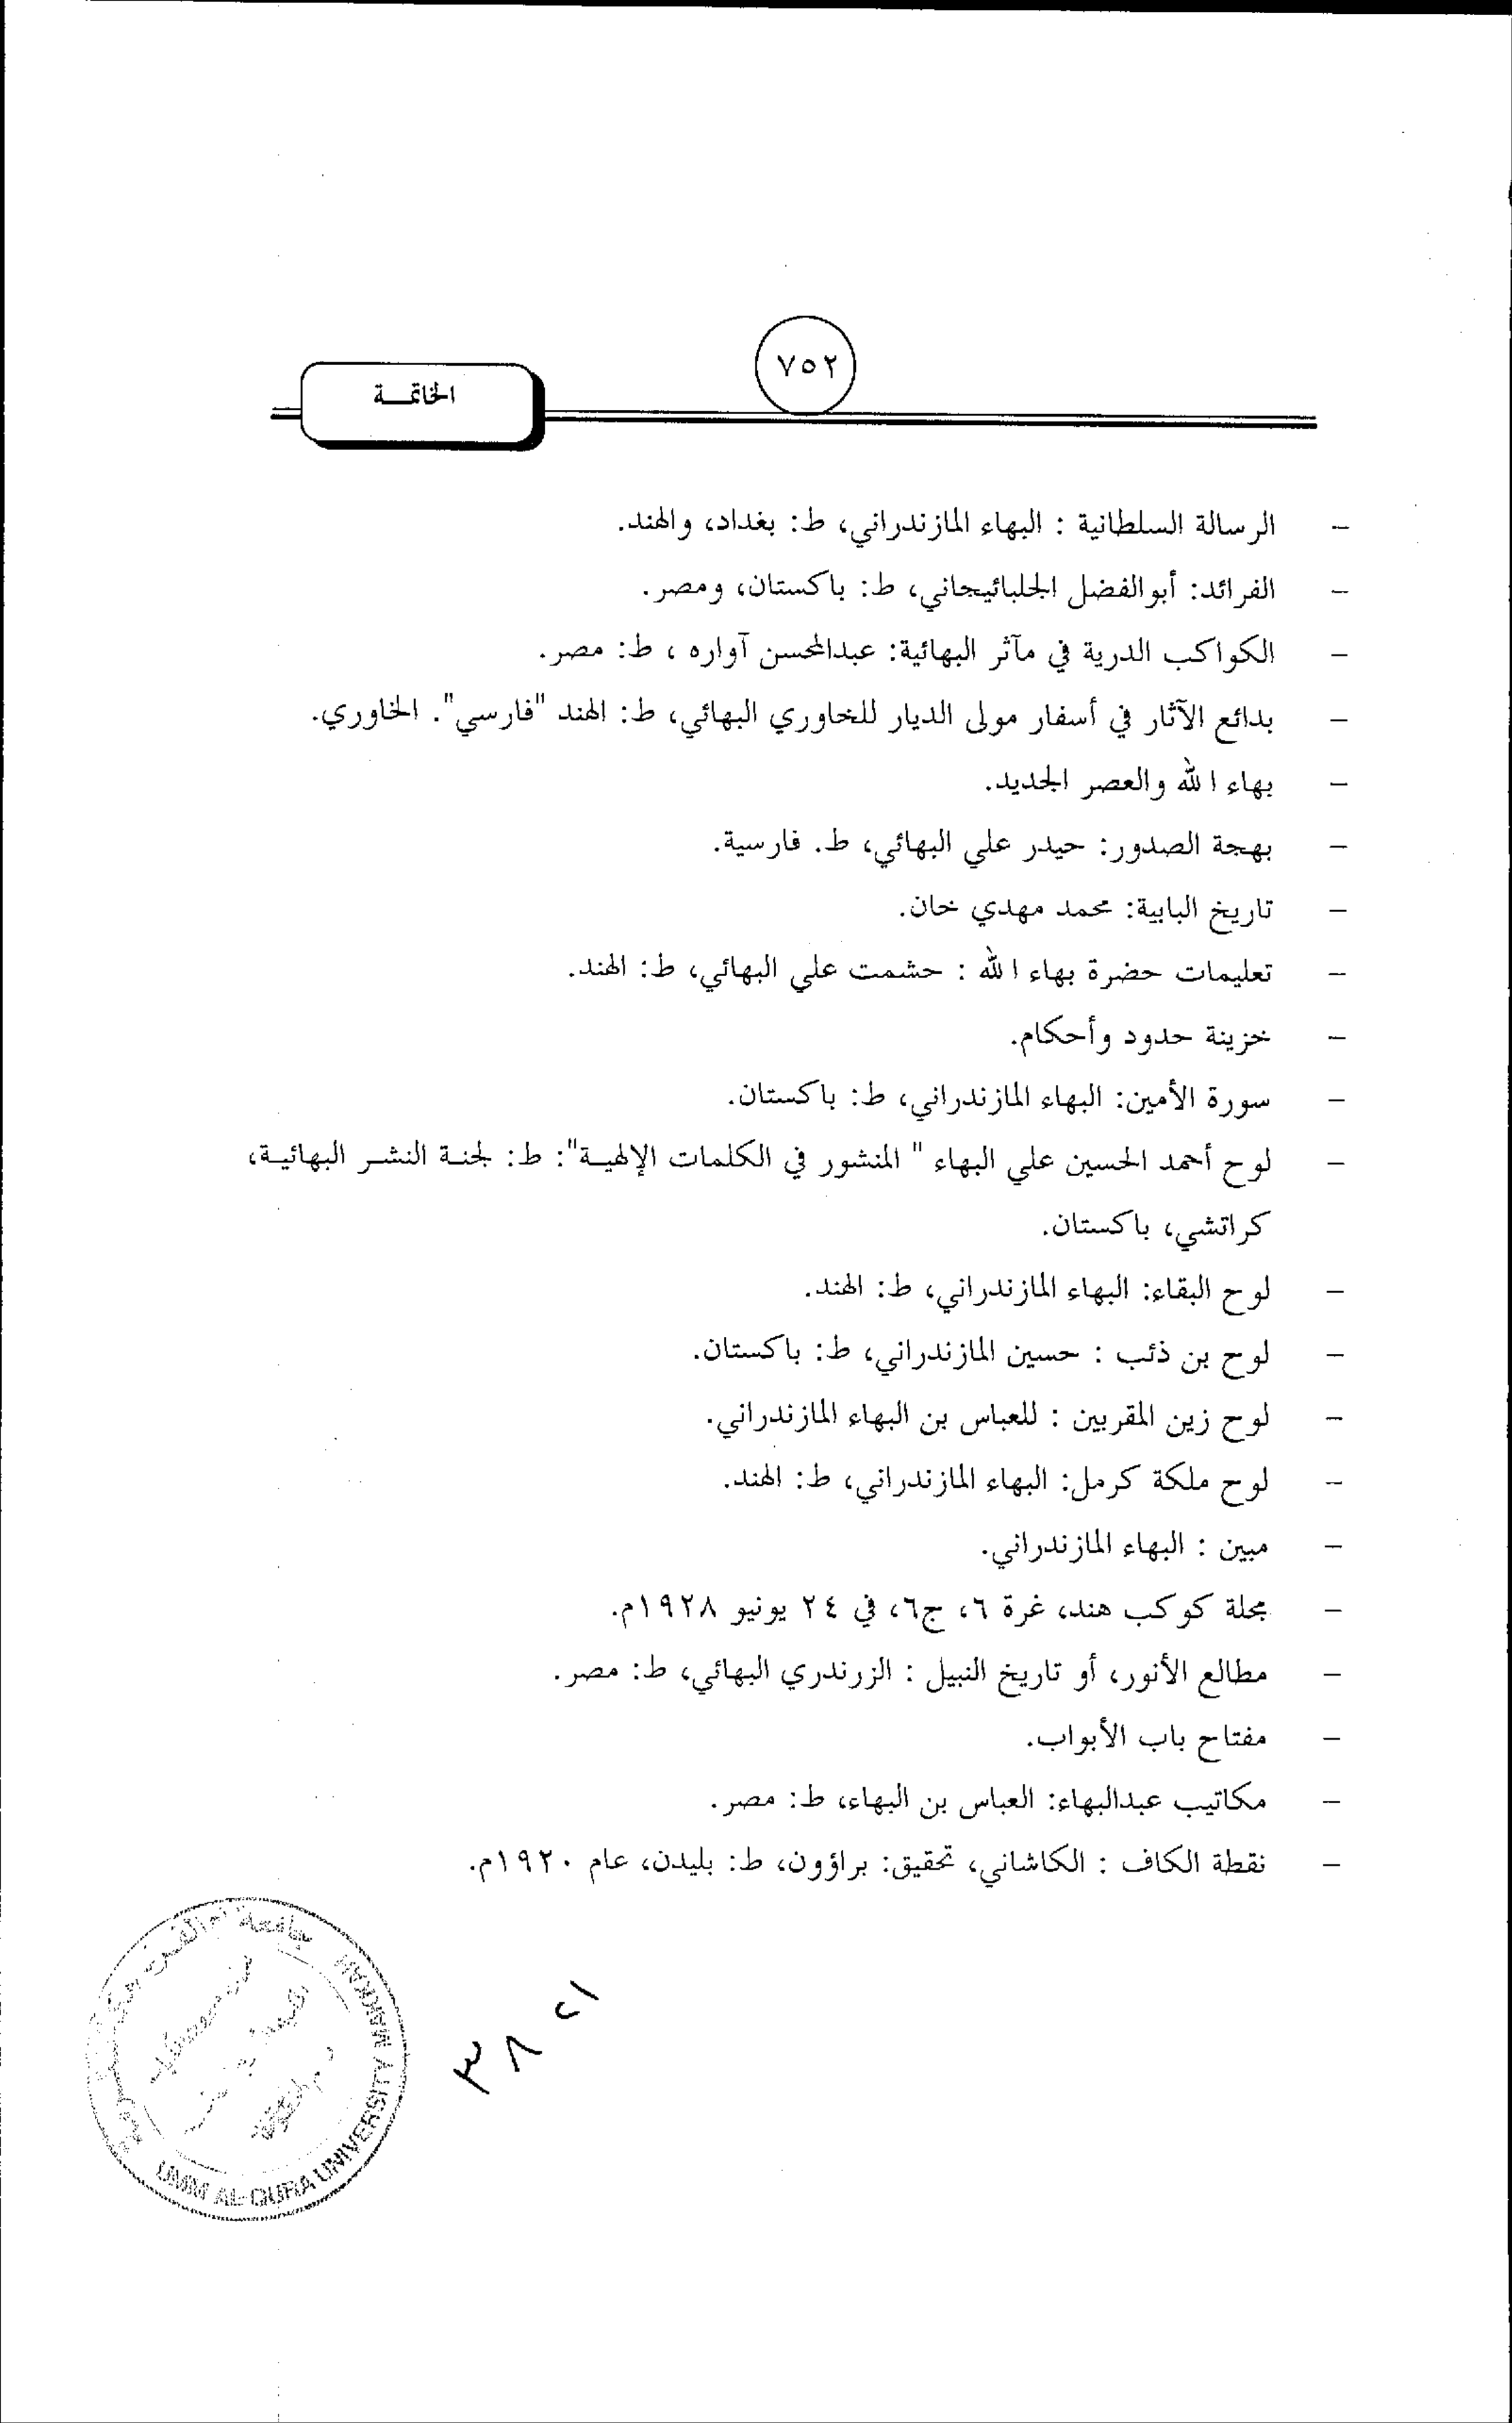 ٧٥٢
الخاتمـــة
– الرسالة السلطانية : البهاء المازندراني، ط: بغداد، والهند.
– الفرائد: أبوالفضل الجلبائيجاني، ط: باكستان، ومصر.
– الكواكب الدرية في مآثر البهائية: عبدالمحسن آواره ، ط: مصر.
– بدائع الآثار في أسفار مولى الديار للخاوري البهائي، ط: الهند "فارسي". الخاوري.
– بهاء الله والعصر الجديد.
– بهجة الصدور: حيدر علي البهائي، ط. فارسية.
– تاريخ البابية: محمد مهدي خان.
– تعليمات حضرة بهاء الله : حشمت علي البهائي، ط: الهند.
– خزينة حدود وأحكام.
– سورة الأمين: البهاء المازندراني، ط: باكستان.
– لوح أحمد الحسين علي البهاء " المنشور في الكلمات الإلهيـة": ط: لجنـة النشـر البهائيـة،
كراتشي، باكستان.
– لوح البقاء: البهاء المازندراني، ط: الهند.
– لوح بن ذئب : حسين المازندراني، ط: باكستان.
– لوح زين المقربين : للعباس بن البهاء المازندراني.
– لوح ملكة كرمل: البهاء المازندراني، ط: الهند.
– مبين : البهاء المازندراني.
– مجلة كوكب هند، غرة ٦، ج٦، في ٢٤ يونيو ١٩٢٨م.
– مطالع الأنور، أو تاريخ النبيل : الزرندري البهائي، ط: مصر.
– مفتاح باب الأبواب.
– مكاتيب عبدالبهاء: العباس بن البهاء، ط: مصر.
– نقطة الكاف : الكاشاني، تحقيق: براؤون، ط: بليدن، عام ١٩٢٠م.
٣٨٢١
جامعة أم القرى
UMM AL-QURA UNIVERSITY MAKKAH